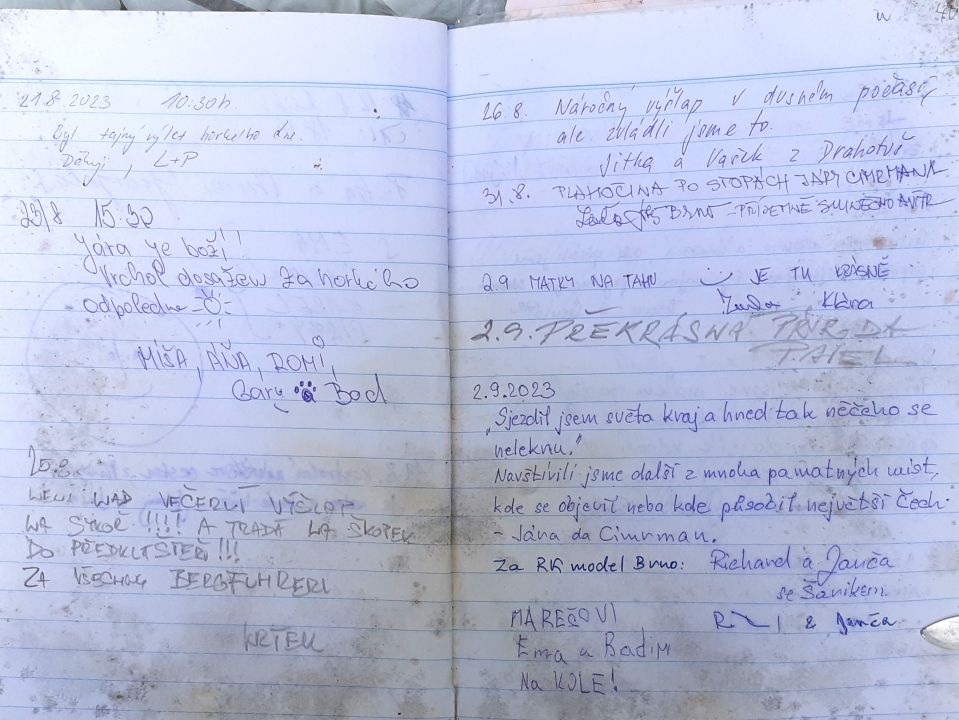 21.8.2023 10:30h
Byl tajný výlet horkého dne.
Děkuji, L+P
23/8 15:30
Jára je boží!!
Vrchol dosažen za horkého
odpoledne
MÍŠA, ÁŇA, ROMI,
Gary a Bad
25.8.
NENÍ NAD VEČERNÍ VÝŠLAP
NA SÝKOŘ !!!! A TRADÁ NA ŠKOTEK
DO PŘEDKLÁŠTEŘÍ !!!
ZA VŠECHNY BERGFUHRERI
KRTEK
40
26.8. Náročný výšlap v dusném počasí,
ale zvládli jsme to.
Jitka a Vašek z Drahotuš
31.8. PLAHOČINA PO STOPÁCH JÁRY CIMRMANA
BRNO - PŘÍJETNÉ
2.9 MATKY NA TAHU JE TU KRÁSNĚ
Klára
2.9. PŘEKRÁSNÁ PŘÍRODA
2.9.2023
„Sjezdil jsem světa kraj a hned tak něčeho se
neleknu."
Navštívili jsme další z mnoha památných míst,
kde se objevil neba kde působil největší Čech
- Jára da Cimrman.
Za RK model Brno: Richard a Janča
se Šanikem.
R & Janča
MAREČOVI
Ema a Radim
Na KOLE!